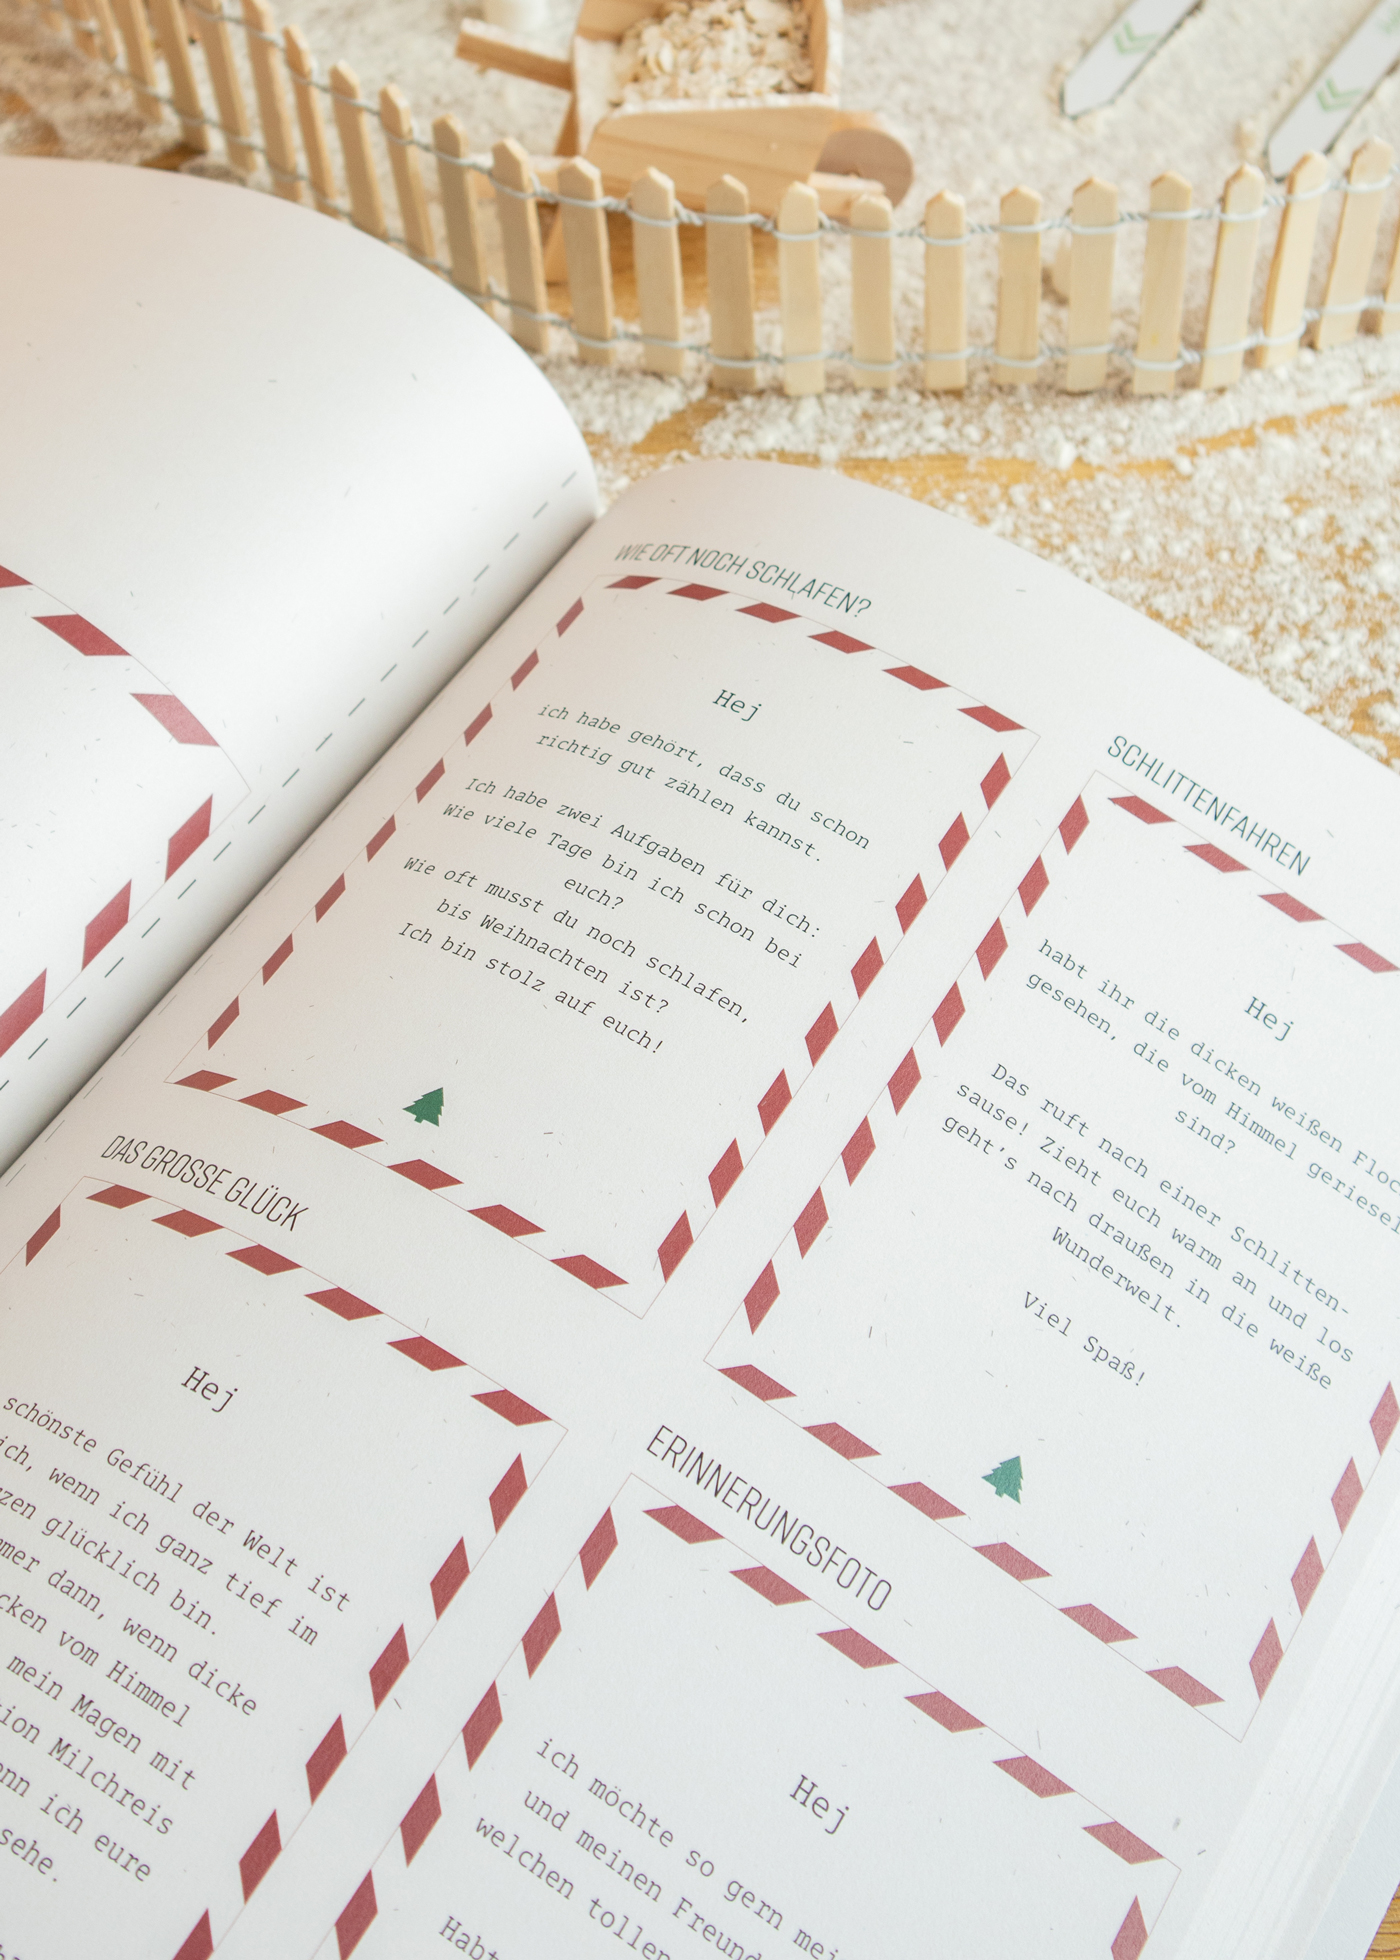 WIE OFT NOCH SCHLAFEN?
Hej
ich habe gehört, dass du schon
richtig gut zählen kannst.
Ich habe zwei Aufgaben für dich:
Wie viele Tage bin ich schon bei
euch?
Wie oft musst du noch schlafen,
bis Weihnachten ist?
Ich bin stolz auf euch!
SCHLITTENFAHREN
Hej
habt ihr die dicken weißen
gesehen, die vom Himmel
sind?
Das ruft nach einer Schlitten-
sause! Zieht euch warm an und los
geht's nach draußen in die weiße
Wunderwelt.
Viel Spaß!
DAS GROSSE GLÜCK
Hej
schönste Gefühl der Welt ist
wenn ich ganz tief im
glücklich bin.
dann, wenn dicke
vom Himmel
mein Magen mit
Milchreis
ich eure
sehe.
ERINNERUNGSFOTO
Hej
ich möchte so gern
und meinen
welchen